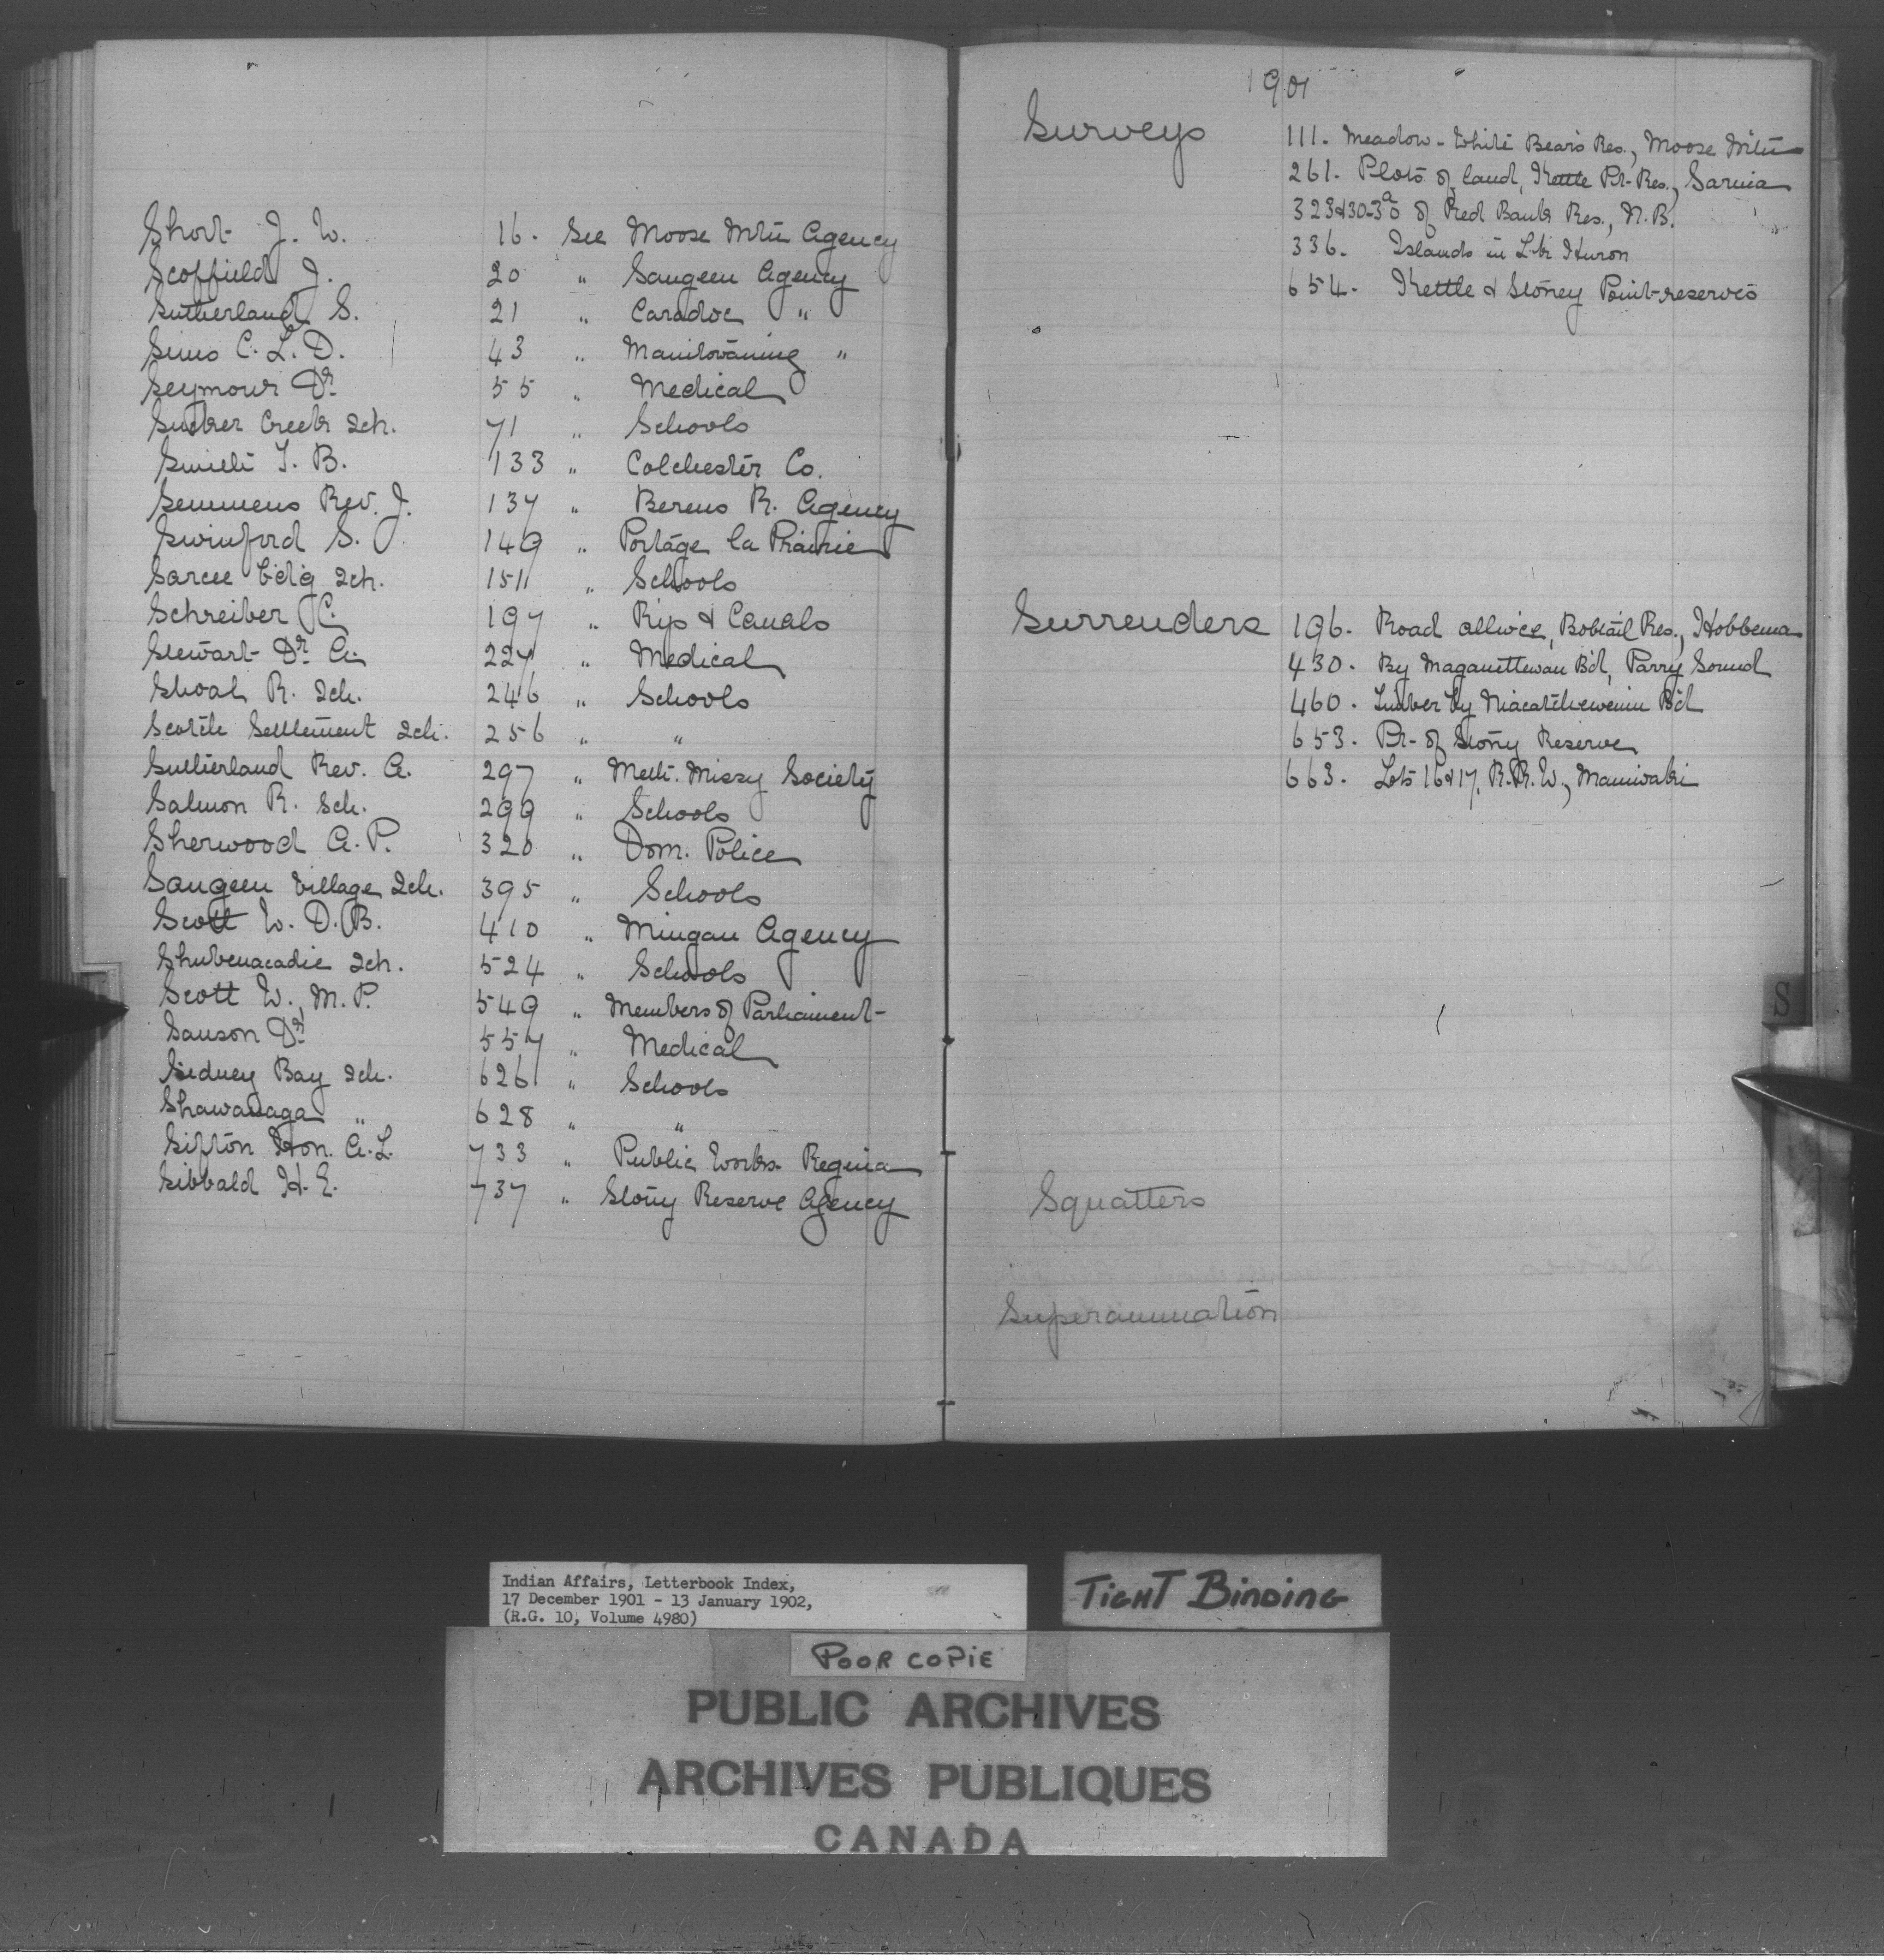 Short J. W. 16. See Moose Mtn Agency
Scoffield J. 20 " Saugeen Agency
Sutherland S. 21 " Caradoc "
Sims C. L. D. 43 " Manitowaning "
Seymour Dr 55 " Medical
Sucker Creek Sch. 71 " Schools
Smith T. B. 133 " Colchester Co.
Semmens Rev. J. 137 " Berens R. Agency
Swinford S. 149 " Portage la Prairie
Sarcee b'd'g Sch. 151 " Schools
Schreiber C. 197 " Rys & Canals
Stewart Dr A. 227 " Medical
Shoal R. Sch. 246 " Schools
Scotch Settlement Sch. 256 " "
Sutherland Rev. A. 297 " Meth. Missy Society
Salmon R. Sch. 299 " Schools
Sherwood A. P. 320 " Dom. Police
Saugeen Village Sch. 395 " Schools
Scott W. D. B. 410 " Mingan Agency
Shubenacadie Sch. 524 " Schools
Scott W., M. P. 549 " Members of Parliament
Sanson Dr 557 " Medical
Sidney Bay Sch. 626 " Schools
Shawanaga " 628 " "
Sifton Hon. A. L. 733 " Public Works. Regina
Sibbald H. E. 737 " Stony Reserve Agency
1901
Surveys 111. Meadow - White Bear's Res., Moose Mtn
261. Plots of land, Kettle Pt. Res., Sarnia
of Red Bank Res., N. B.
336. Islands in Lk Huron
654. Kettle & Stoney Point reserves
Surrenders 196. Road allwce, Bobtail Res., Hobbema
430. By Maganettewan Bd, Parry Sound
460. Timber by Niacatchewenin Bd
653. Pt. of Stony Reserve
663. Lots 16 & 17, R. R. W., Maniwaki
S
Squatters
Superannuation
Indian Affairs, Letterbook Index,
17 December 1901 - 13 January 1902,
(R.G. 10, Volume 4980)
TIGHT BINDING
POOR COPIE
PUBLIC ARCHIVES
ARCHIVES PUBLIQUES
CANADA